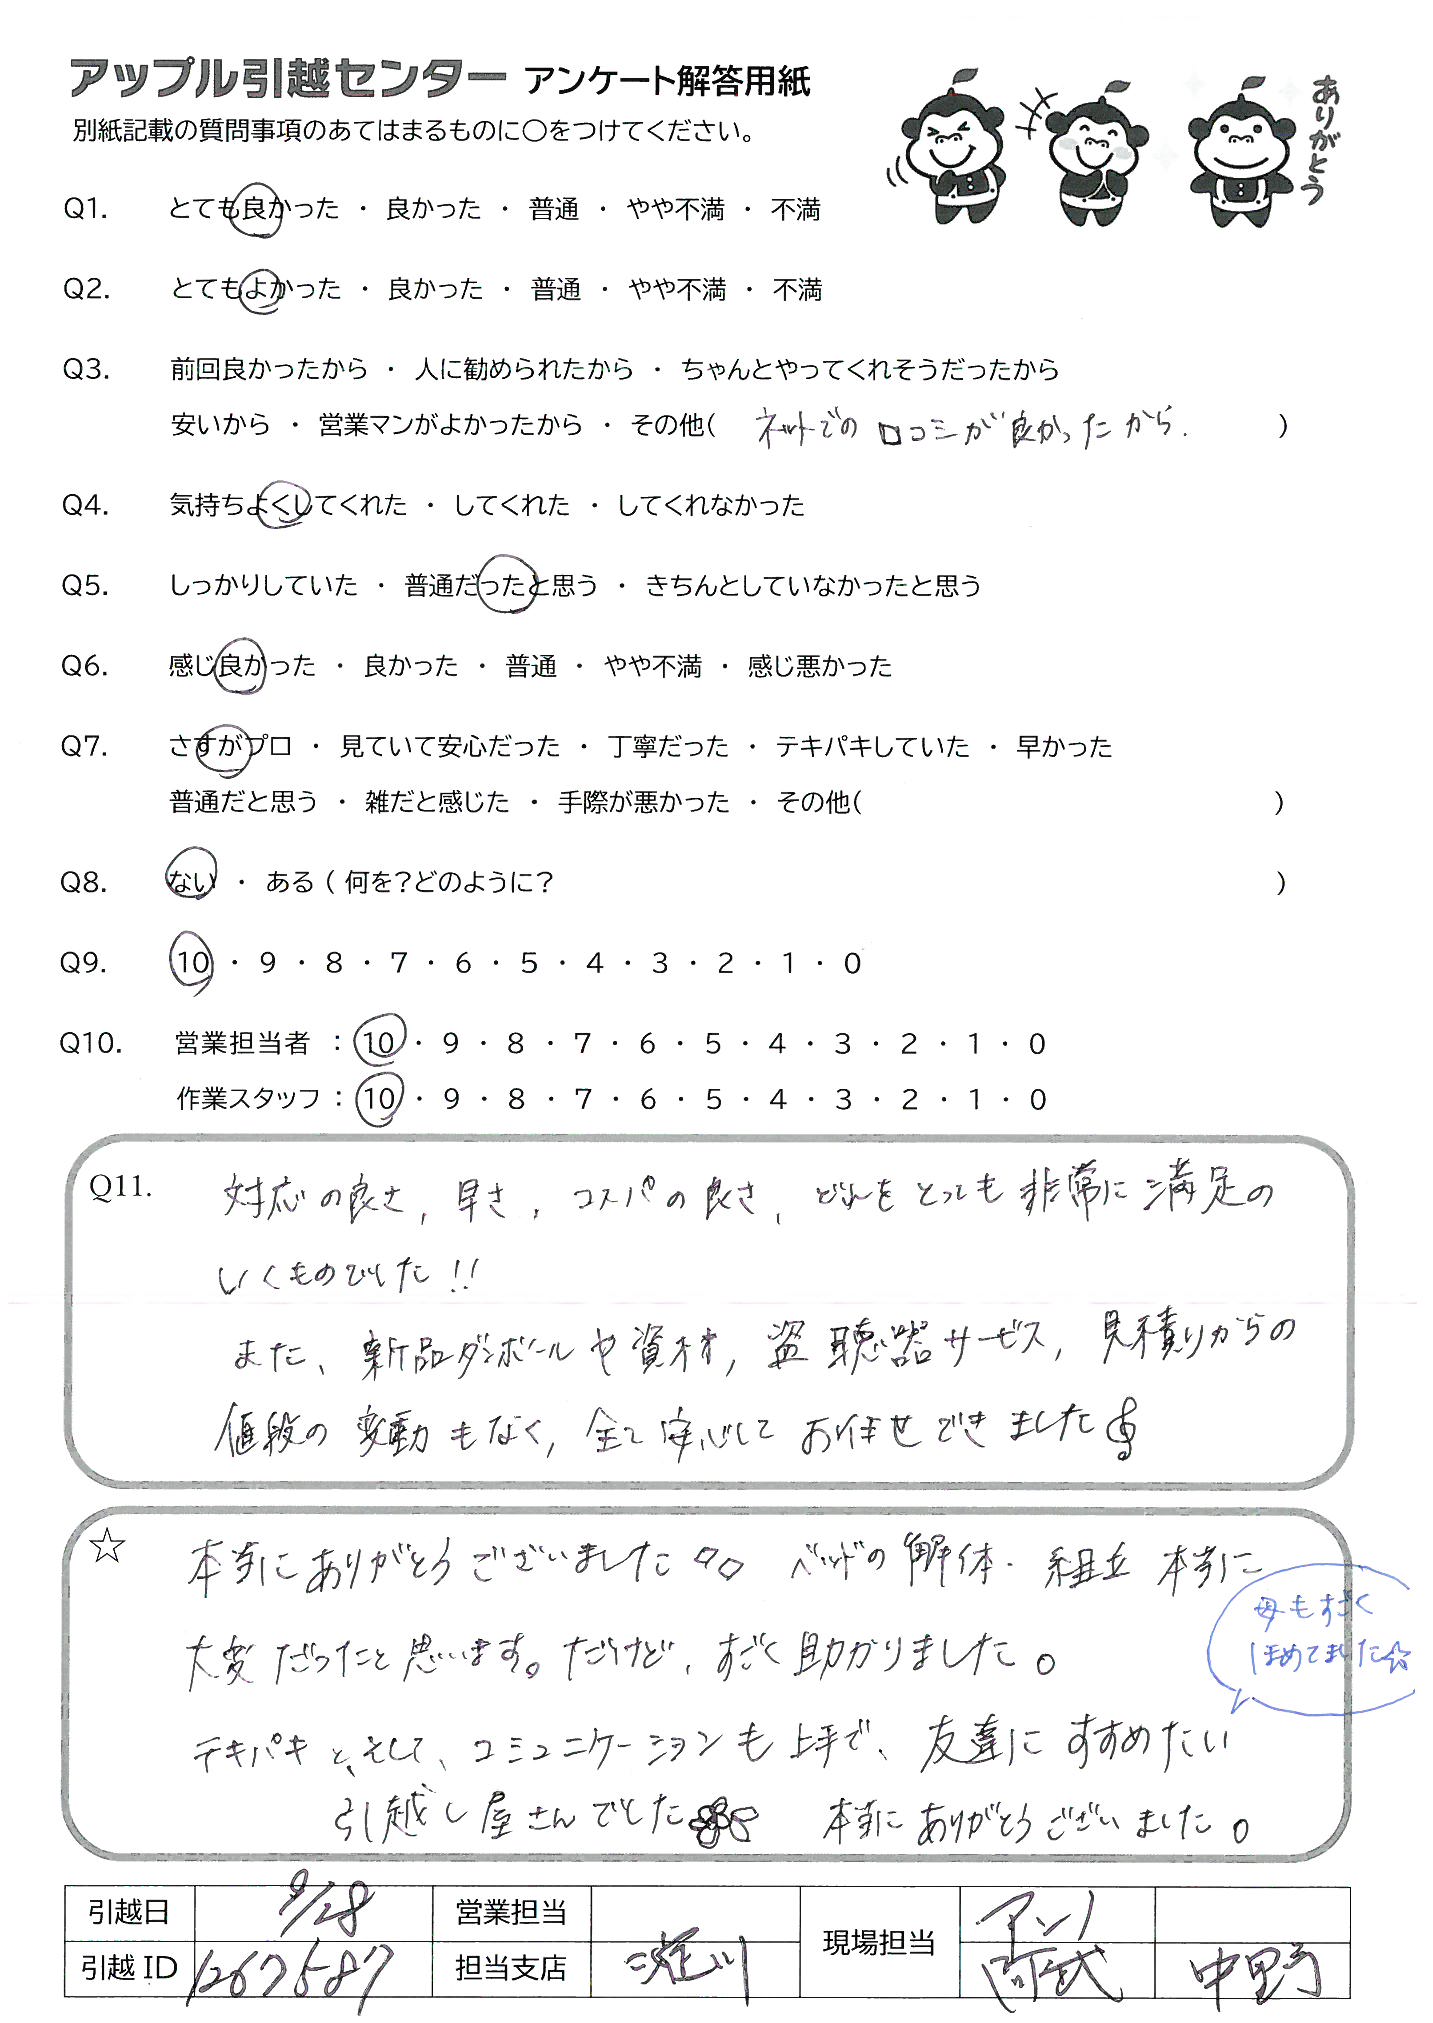 アップル引越センター アンケート解答用紙
別紙記載の質問事項のあてはまるものに○をつけてください。
ありがとう
Q1. とても良かった ・ 良かった ・ 普通 ・ やや不満 ・ 不満
Q2. とてもよかった ・ 良かった ・ 普通 ・ やや不満 ・ 不満
Q3. 前回良かったから ・ 人に勧められたから ・ ちゃんとやってくれそうだったから
安いから ・ 営業マンがよかったから ・ その他( ネットでの口コミが良かったから. )
Q4. 気持ちよくしてくれた ・ してくれた ・ してくれなかった
Q5. しっかりしていた ・ 普通だったと思う ・ きちんとしていなかったと思う
Q6. 感じ良かった ・ 良かった ・ 普通 ・ やや不満 ・ 感じ悪かった
Q7. さすがプロ ・ 見ていて安心だった ・ 丁寧だった ・ テキパキしていた ・ 早かった
普通だと思う ・ 雑だと感じた ・ 手際が悪かった ・ その他( )
Q8. ない ・ ある ( 何を？どのように？ )
Q9. 10 ・ 9 ・ 8 ・ 7 ・ 6 ・ 5 ・ 4 ・ 3 ・ 2 ・ 1 ・ 0
Q10. 営業担当者 ： 10 ・ 9 ・ 8 ・ 7 ・ 6 ・ 5 ・ 4 ・ 3 ・ 2 ・ 1 ・ 0
作業スタッフ ： 10 ・ 9 ・ 8 ・ 7 ・ 6 ・ 5 ・ 4 ・ 3 ・ 2 ・ 1 ・ 0
Q11. 対応の良さ, 早さ, コスパの良さ, どれをとっても非常に満足の
いくものでした!!
また、新品ダンボールや資材, 盗聴器サービス, 見積りからの
値段の変動もなく, 全て安心してお任せできました
☆ 本当にありがとうございました ベッドの解体・組立 本当に
大変だったと思います。だけど、すごく助かりました。
母もすごく
ほめてました☆
テキパキと、そして、コミュニケーションも上手で、友達にすすめたい
引越し屋さんでした 本当にありがとうございました。
引越日 9/28 営業担当 現場担当 アンノ
引越ID 1267587 担当支店 淀川 中野